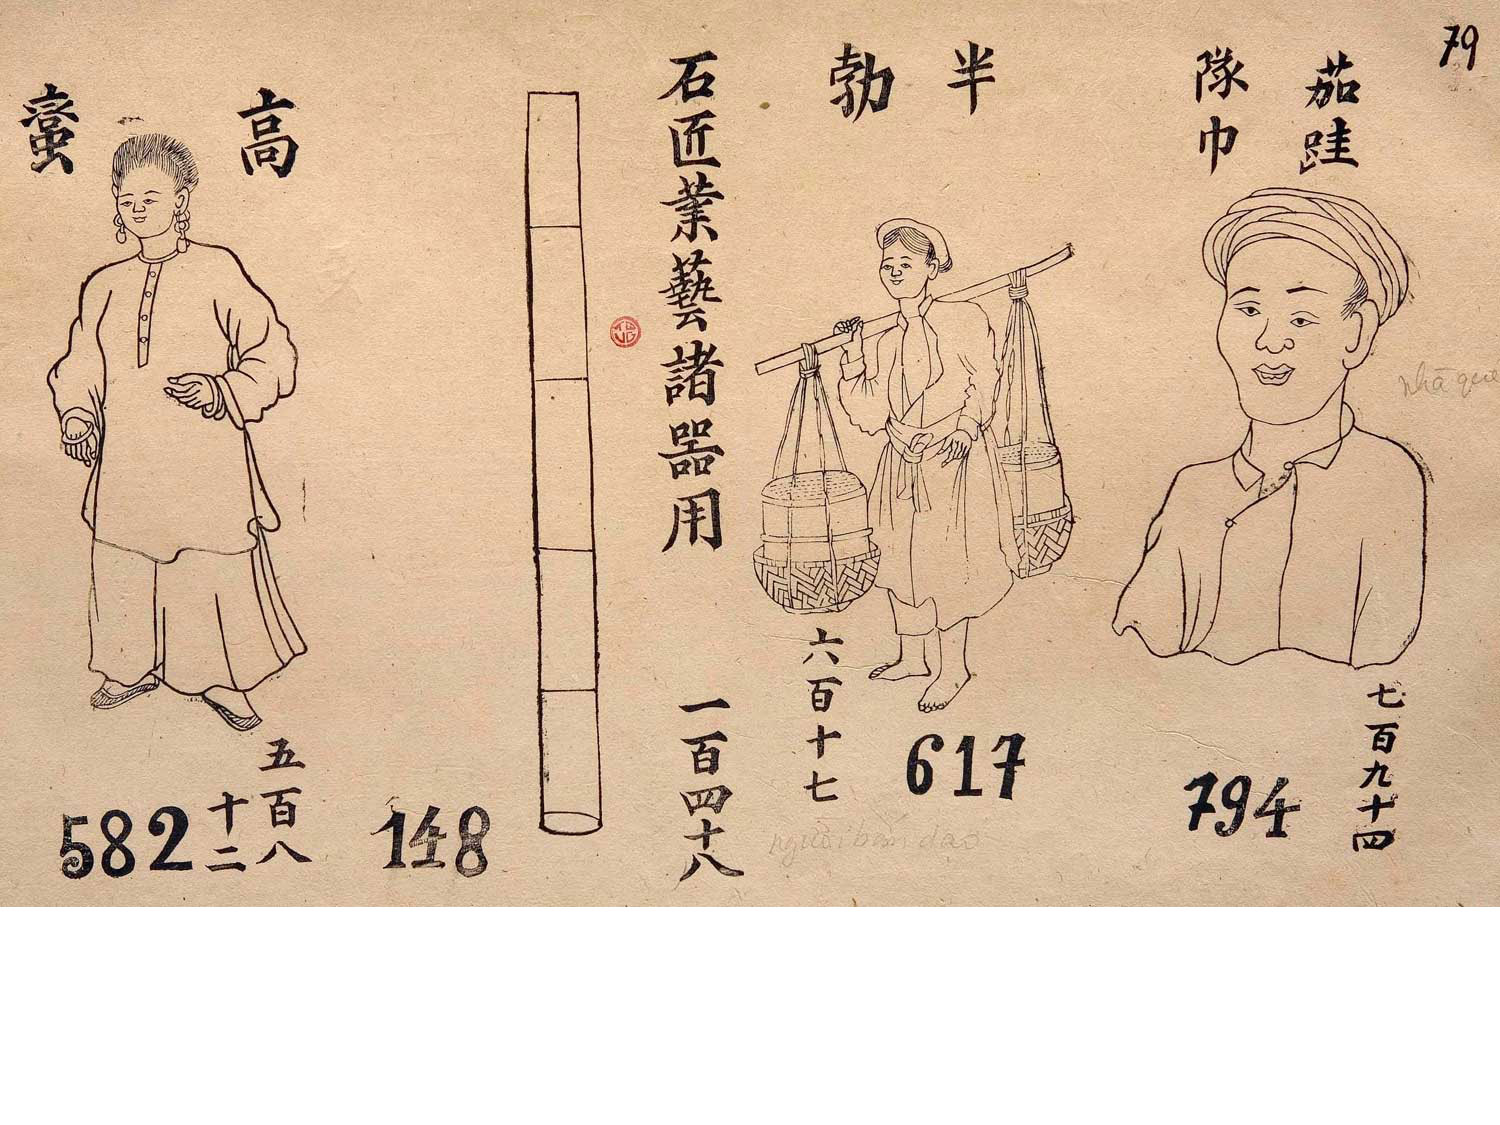 79
茄跬
隊巾
七百九十四
794
半勃
六百十七
617
石匠業藝諸器用
一百四十八
148
高蠻
五百八
十二
582
nhà quê
người bán dao